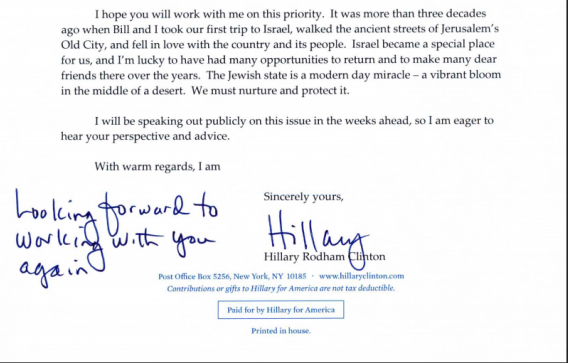 I hope you will work with me on this priority. It was more than three decades
ago when Bill and I took our first trip to Israel, walked the ancient streets of Jerusalem's
Old City, and fell in love with the country and its people. Israel became a special place
for us, and I'm lucky to have had many opportunities to return and to make many dear
friends there over the years. The Jewish state is a modern day miracle – a vibrant bloom
in the middle of a desert. We must nurture and protect it.
I will be speaking out publicly on this issue in the weeks ahead, so I am eager to
hear your perspective and advice.
With warm regards, I am
Looking forward to
working with you
again
Sincerely yours,
Hillary
Hillary Rodham Clinton
Post Office Box 5256, New York, NY 10185 · www.hillaryclinton.com
Contributions or gifts to Hillary for America are not tax deductible.
Paid for by Hillary for America
Printed in house.